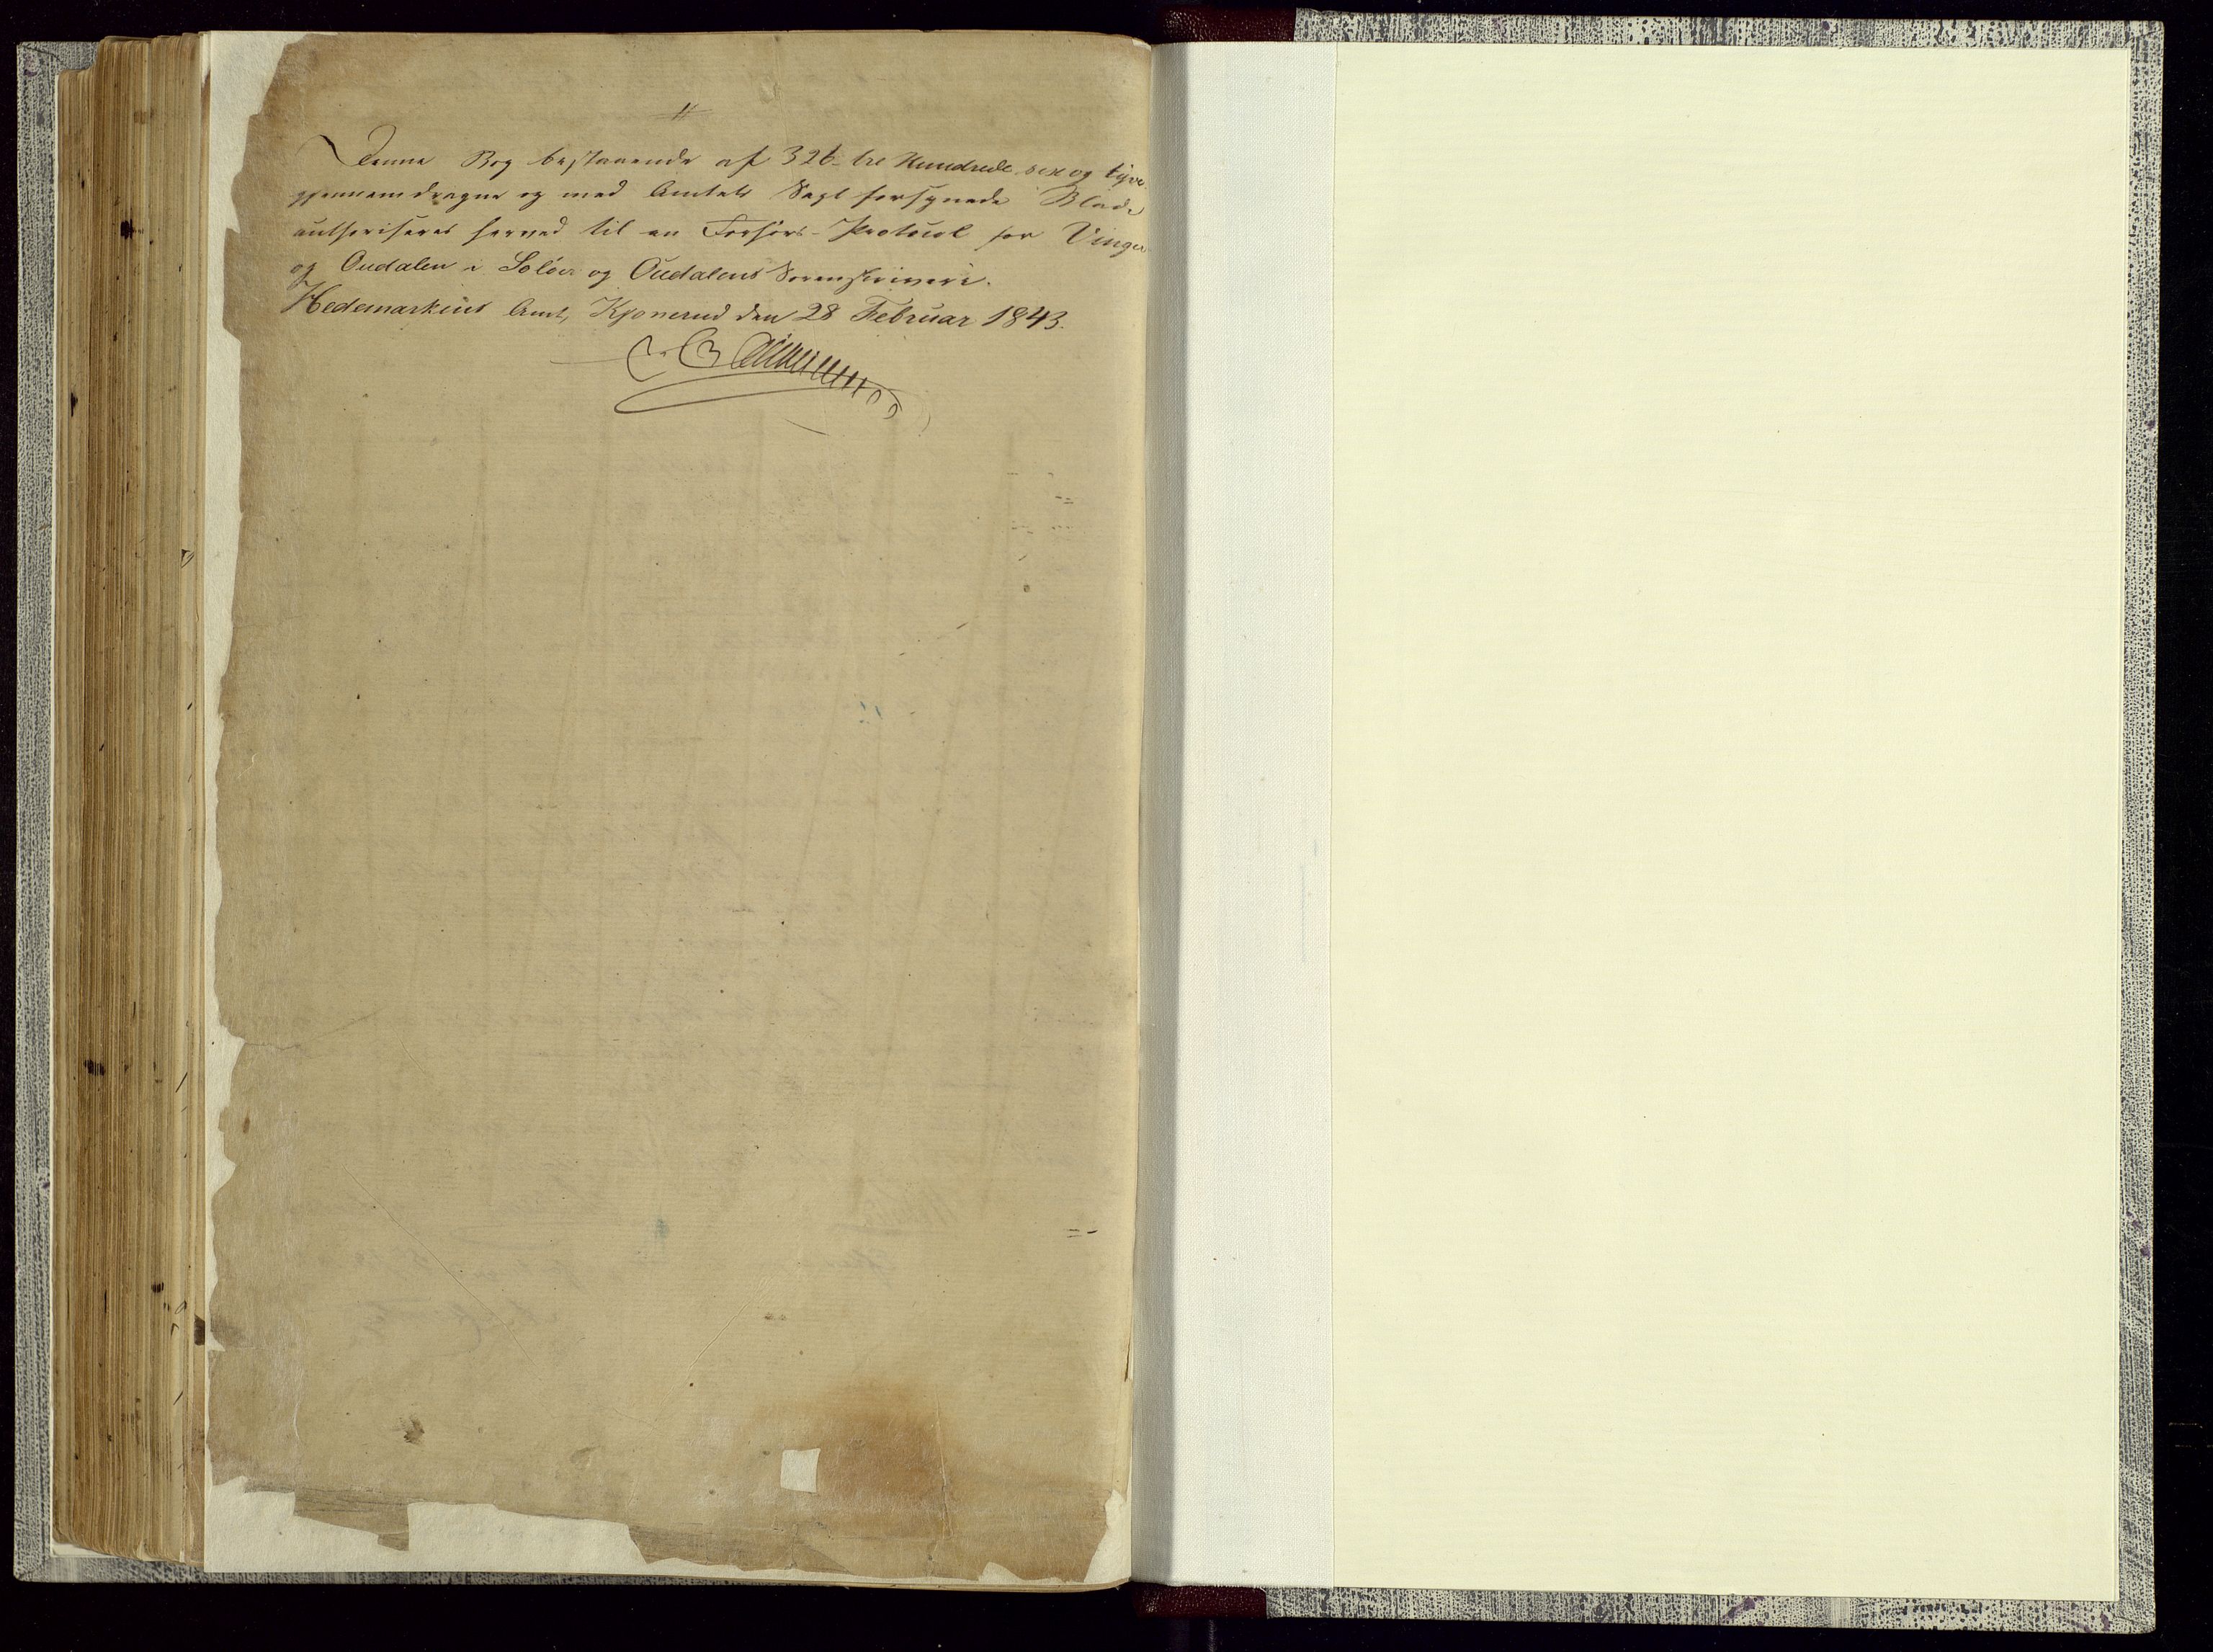 Denne Bog bestaaende af 326 tre Hundrede sex og tyve
gjennemdragne og med Amtets Segl forsynede Blade
authoriseres herved til en Forhørs-Protocol for Vinger
og Oudalen i Soløer og Oudalens Sorenskriveri.
Hedemarkens Amt, Kjonerud den 28 Februar 1843.